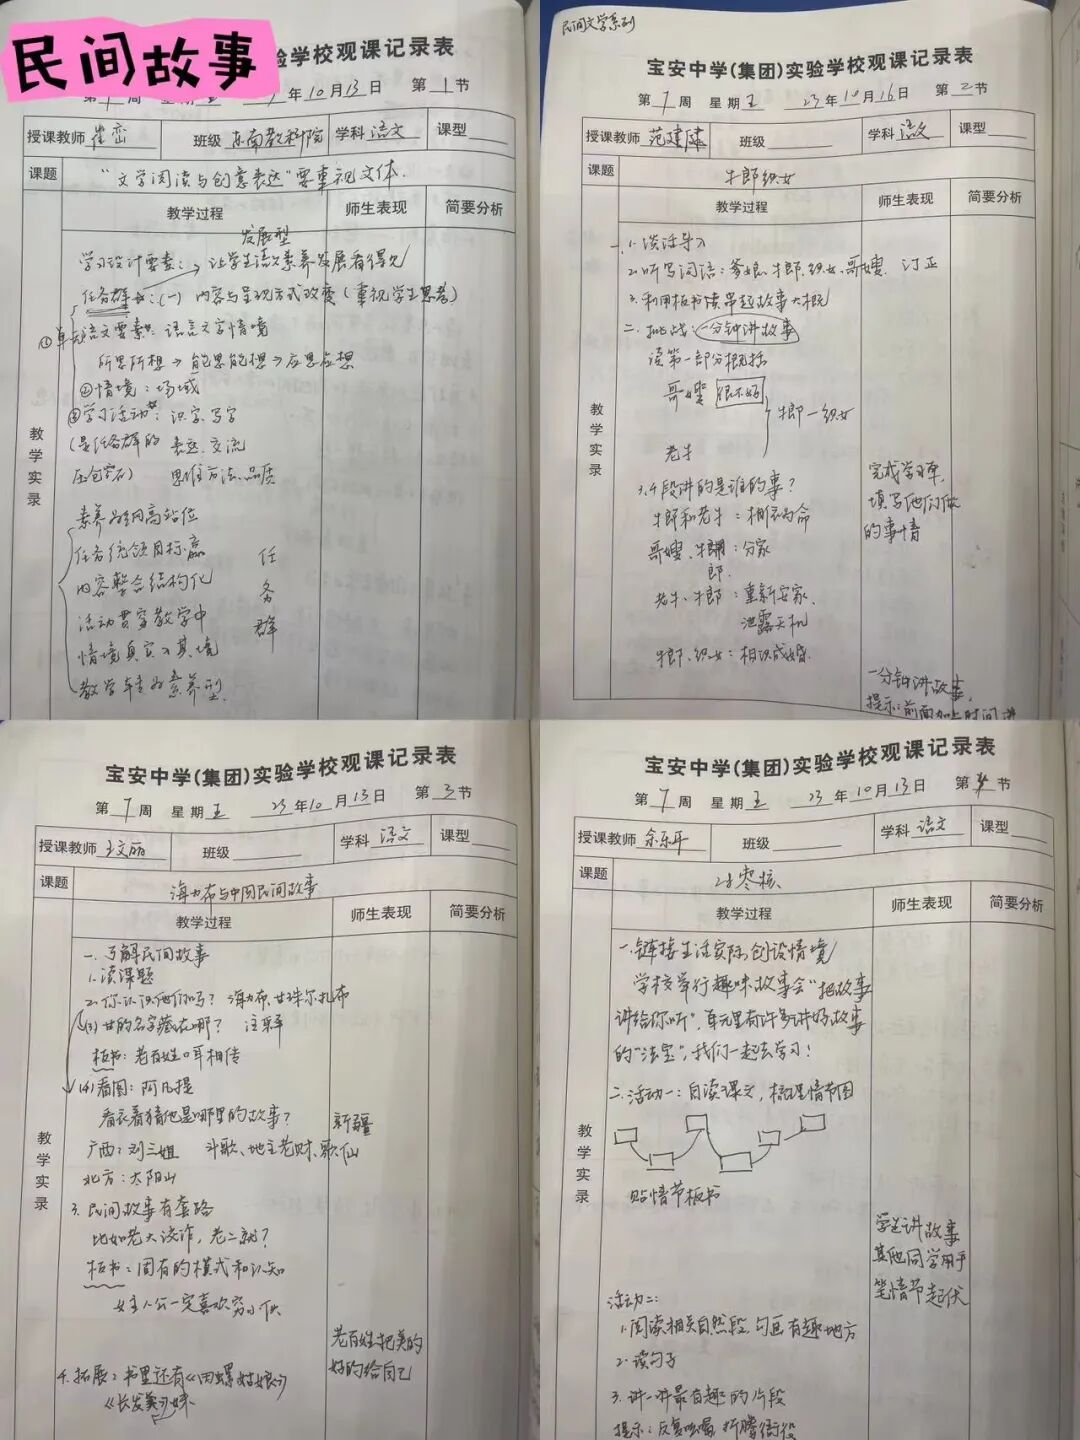 民间故事
验学校观课记录表
第7周 星期五 年10月13日 第1节
授课教师 崔峦 班级 东南教科院 学科 语文 课型
课题 “文学阅读与创意表达”要重视文体.
教学过程 师生表现 简要分析
教学实录
发展型
学习设计要素: 让学生语文素养发展看得见
任务群:(一) 内容与呈现方式改变(重视学生思考)
①单元语文要素: 语言文字情境
所思所想→能思能想→应思应想
②情境:场域
③学习活动: 识字、写字
(是任务群的 表达、交流
压仓石) 思维方法、品质
素养为纲高站位
任务统领目标赢
内容整合结构化
活动贯穿教学中
情境真实入其境
教学转为素养型.
任务群
民间文学系列
宝安中学(集团)实验学校观课记录表
第7周 星期五 23年10月16日 第2节
授课教师 范建健 班级 学科 语文 课型
课题 牛郎织女
教学过程 师生表现 简要分析
教学实录
一、1.谈话导入
2.听写词语:爹娘、牛郎、织女、哥嫂 订正
3.利用板书读串起故事大概
二、挑战:一分钟讲故事
读第一部分概括
哥嫂 很不好
牛郎—织女
老牛
3.4段讲的是谁的事?
牛郎和老牛:相依为命
哥嫂、牛郎:分家
老牛、牛郎:重新安家、
泄露天机
牛郎、织女:相识成婚.
完成学习单,
填写他们做
的事情
一分钟讲故事,
提示:前面加上时间
宝安中学(集团)实验学校观课记录表
第7周 星期五 23年10月13日 第3节
授课教师 王文丽 班级 学科 语文 课型
课题 海力布与中国民间故事
教学过程 师生表现 简要分析
教学实录
一、了解民间故事
1.读课题
2.你认识他们吗? 海力布、甘珠尔扎布
(3)甘的名字藏在哪? 注释
板书:老百姓口耳相传
(4)看图:阿凡提
看衣着猜他是哪里的故事?
新疆
广西:刘三姐 斗歌、地主老财、歌仙
北方:太阳山
3.民间故事有套路
比如老大狡诈,老二就?
板书:固有的模式和认知
女主人公一定喜欢穷小伙
老百姓把美的
好的给自己
4.拓展:书里还有《田螺姑娘》
《长发妹》
宝安中学(集团)实验学校观课记录表
第7周 星期五 23年10月13日 第 节
授课教师 班级 学科 语文 课型
课题 枣核
教学过程 师生表现 简要分析
教学实录
一.链接生活实际,创设情境
学校举行趣味故事会“把故事
讲给你听”,单元里有许多讲好故事
的“法宝”,我们一起去学习!
二.活动一:自读课文,梳理情节图
贴情节板书
学生讲故事
其他同学用手
笔情节起伏
活动二:
1.阅读相关自然段,勾画有趣地方
2.读句子
3.讲一讲最有趣的片段
提示:反复吆喝、折腾衙役